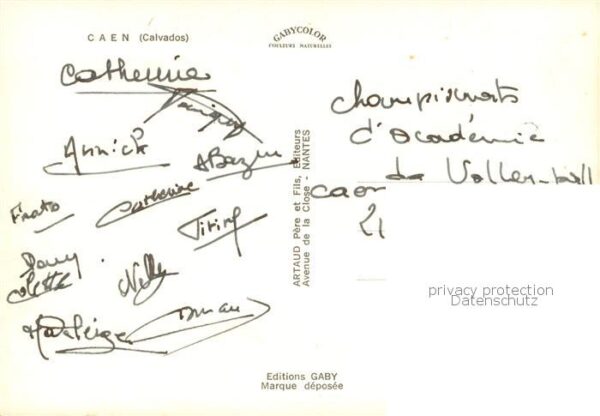 CAEN (Calvados)
GABYCOLOR
COULEURS NATURELLES
Catherine
Annick
ABazin
Frato
Catherine
Titine
Dany
Colette
Nelly
championnats
d'académie
de Volley-ball
Caen
21
ARTAUD Père et Fils, Editeurs
Avenue de la Close - NANTES
privacy protection
Datenschutz
Editions GABY
Marque déposée